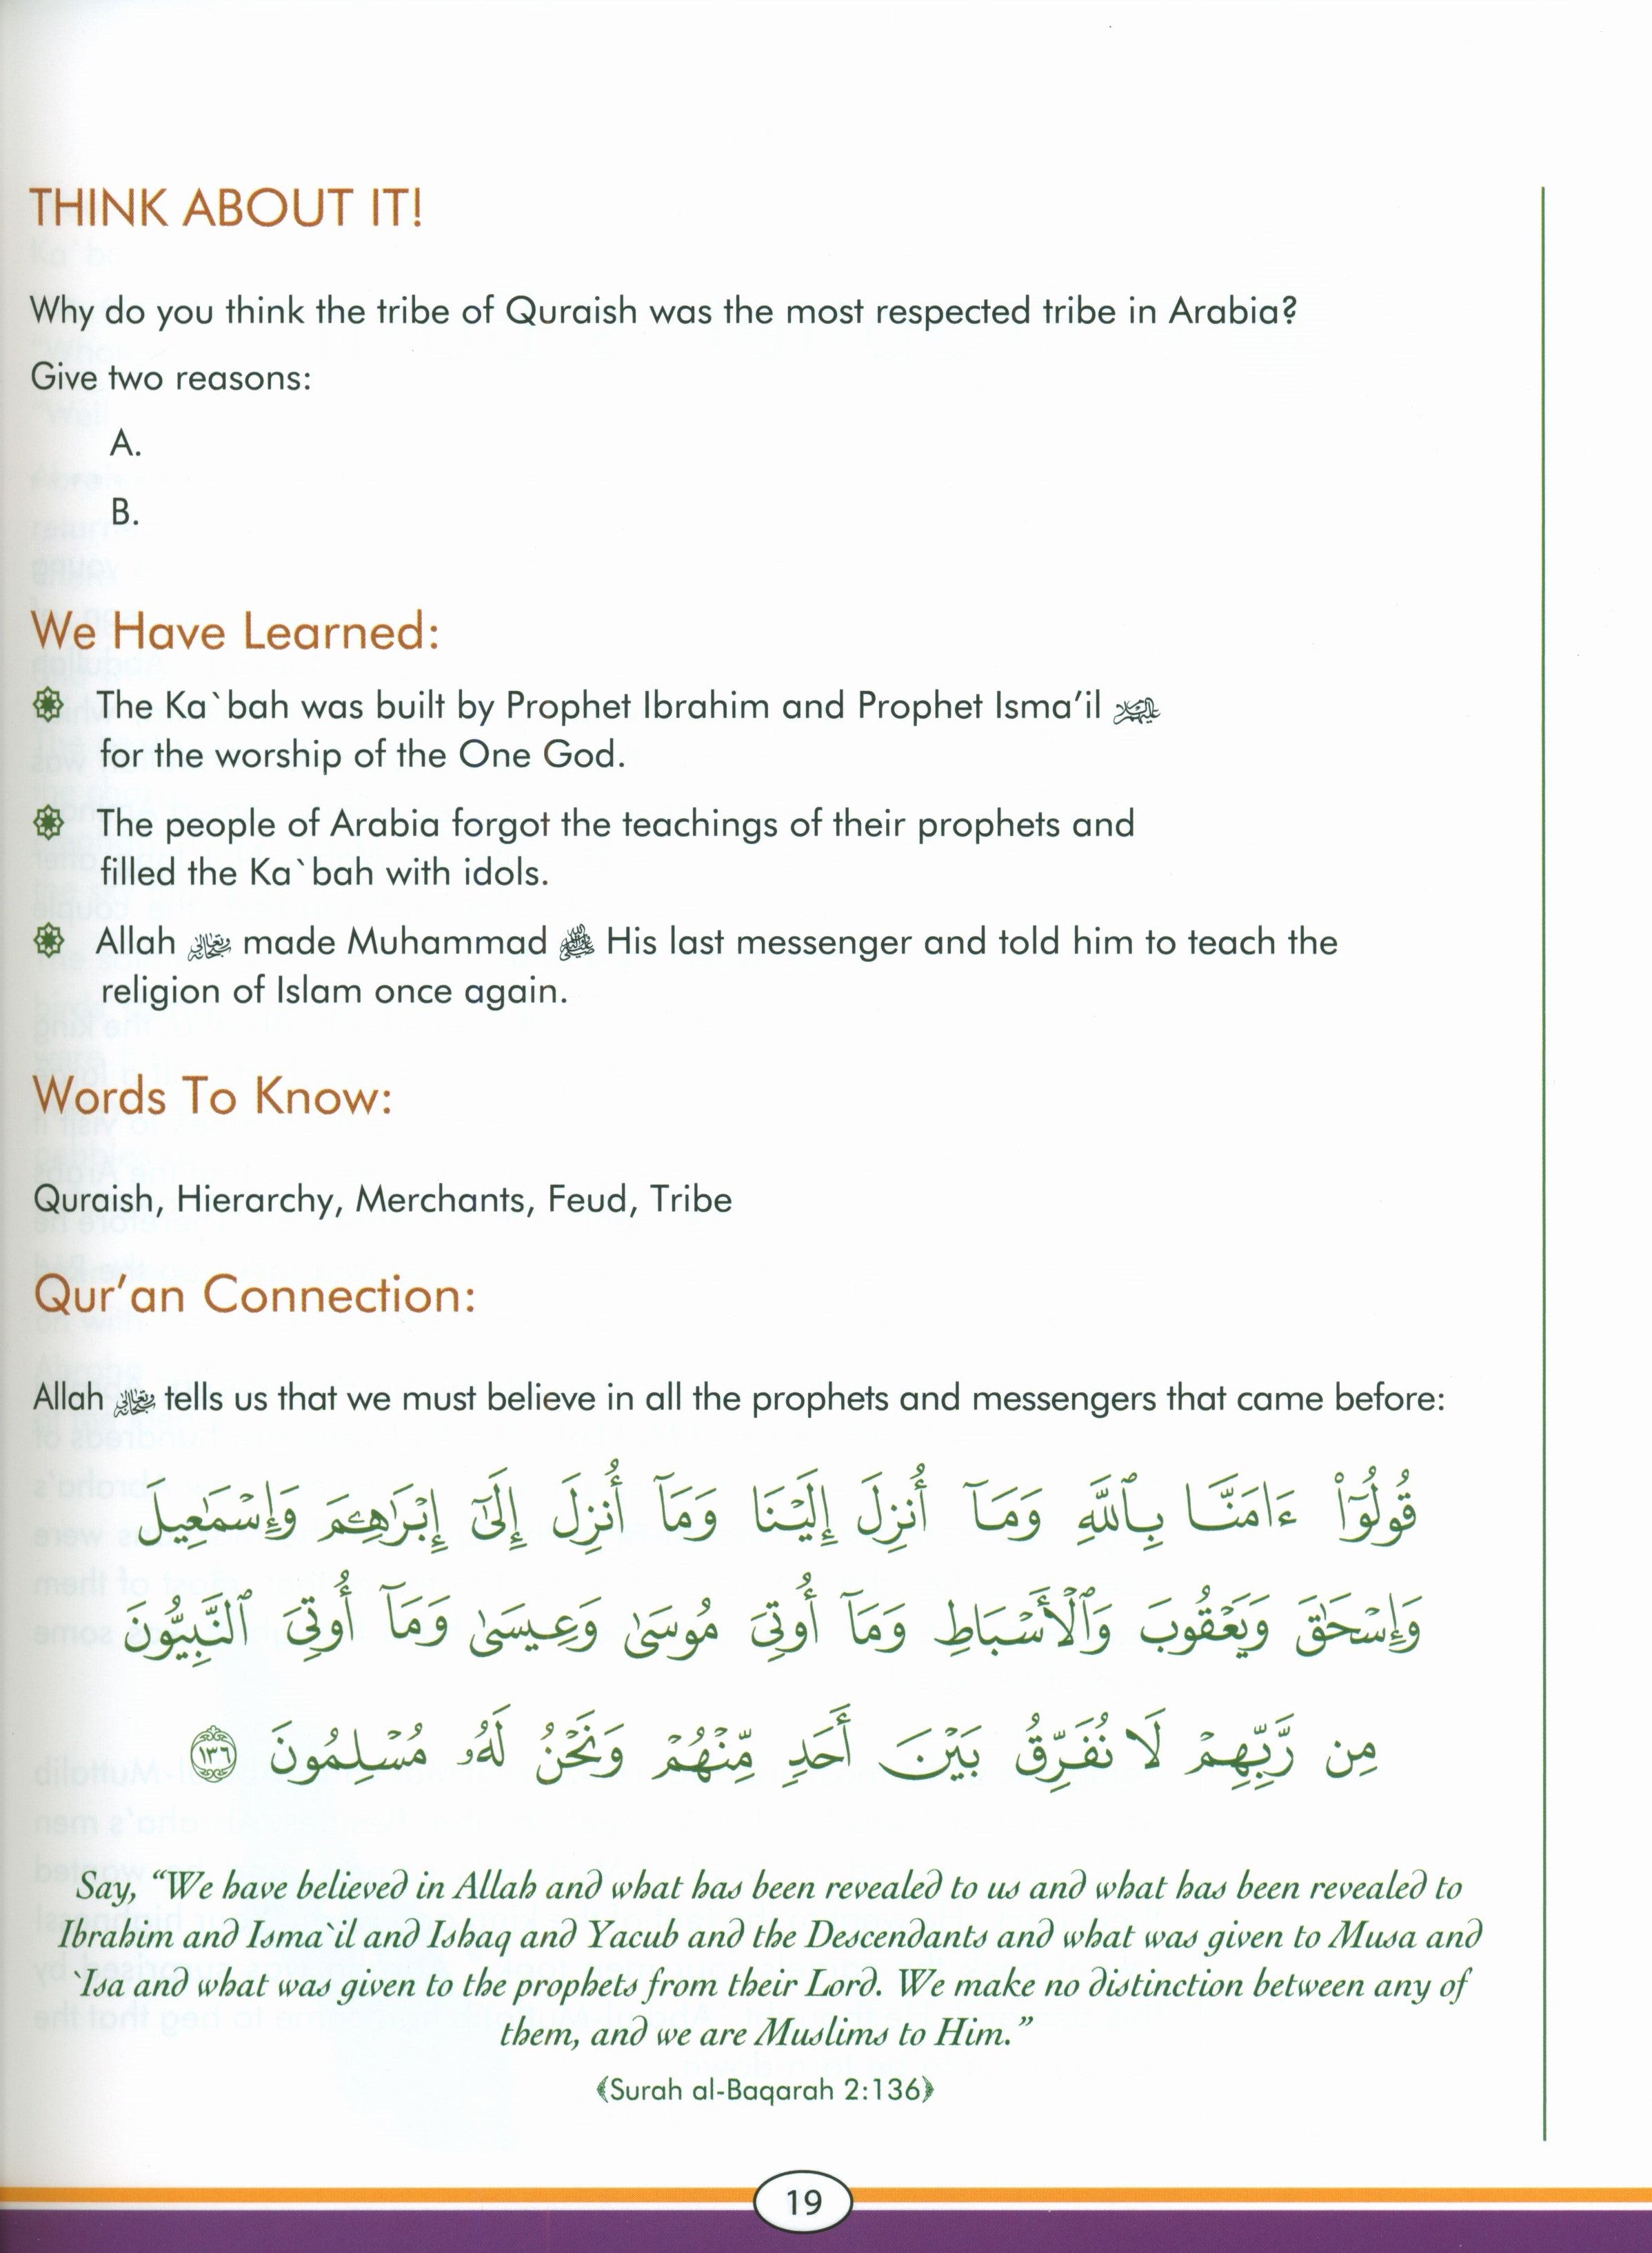 THINK ABOUT IT!
Why do you think the tribe of Quraish was the most respected tribe in Arabia?
Give two reasons:
A.
B.
We Have Learned:
The Ka`bah was built by Prophet Ibrahim and Prophet Isma’il عليهما السلام
for the worship of the One God.
The people of Arabia forgot the teachings of their prophets and
filled the Ka`bah with idols.
Allah سبحانه وتعالى made Muhammad ﷺ His last messenger and told him to teach the
religion of Islam once again.
Words To Know:
Quraish, Hierarchy, Merchants, Feud, Tribe
Qur’an Connection:
Allah سبحانه وتعالى tells us that we must believe in all the prophets and messengers that came before:
قُولُوٓا۟ ءَامَنَّا بِٱللَّهِ وَمَآ أُنزِلَ إِلَيْنَا وَمَآ أُنزِلَ إِلَىٰٓ إِبْرَٰهِـۧمَ وَإِسْمَـٰعِيلَ
وَإِسْحَـٰقَ وَيَعْقُوبَ وَٱلْأَسْبَاطِ وَمَآ أُوتِىَ مُوسَىٰ وَعِيسَىٰ وَمَآ أُوتِىَ ٱلنَّبِيُّونَ
مِن رَّبِّهِمْ لَا نُفَرِّقُ بَيْنَ أَحَدٍ مِّنْهُمْ وَنَحْنُ لَهُۥ مُسْلِمُونَ ١٣٦
Say, “We have believed in Allah and what has been revealed to us and what has been revealed to
Ibrahim and Isma`il and Ishaq and Yacub and the Descendants and what was given to Musa and
`Isa and what was given to the prophets from their Lord. We make no distinction between any of
them, and we are Muslims to Him.”
﴾Surah al-Baqarah 2:136﴿
19